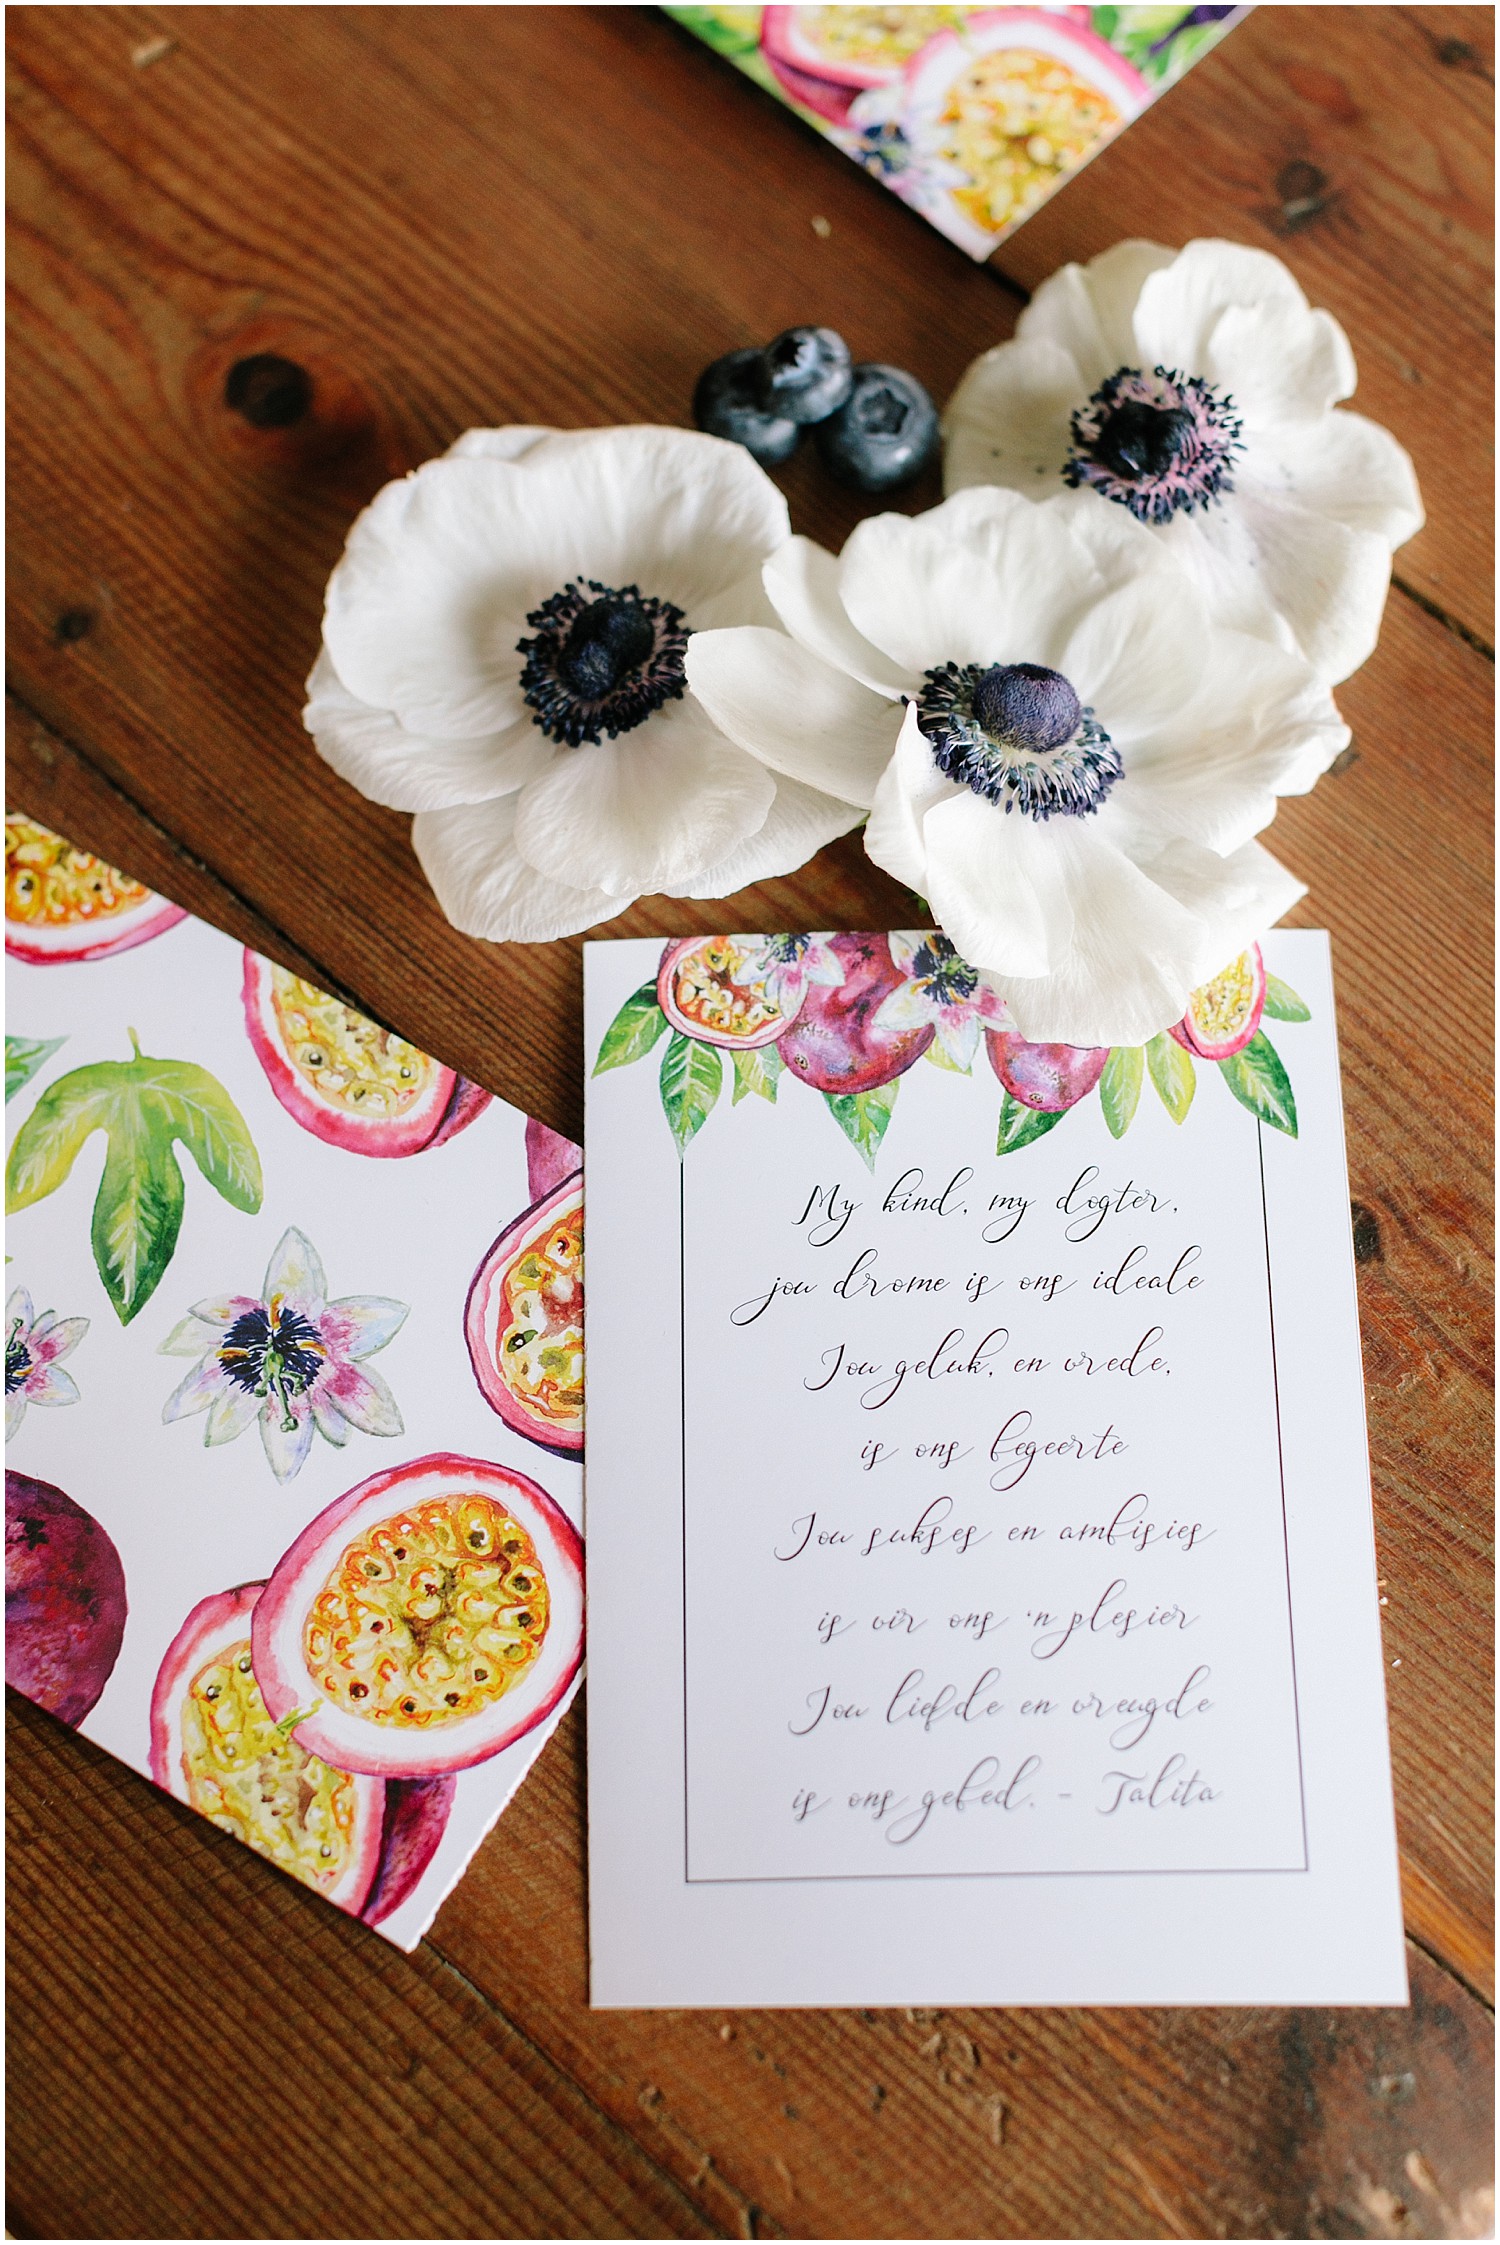 My kind, my dogter,
jou drome is ons ideale
Jou geluk, en vrede,
is ons begeerte
Jou sukses en ambisies
is vir ons 'n plesier
Jou liefde en vreugde
is ons gebed. - Talita